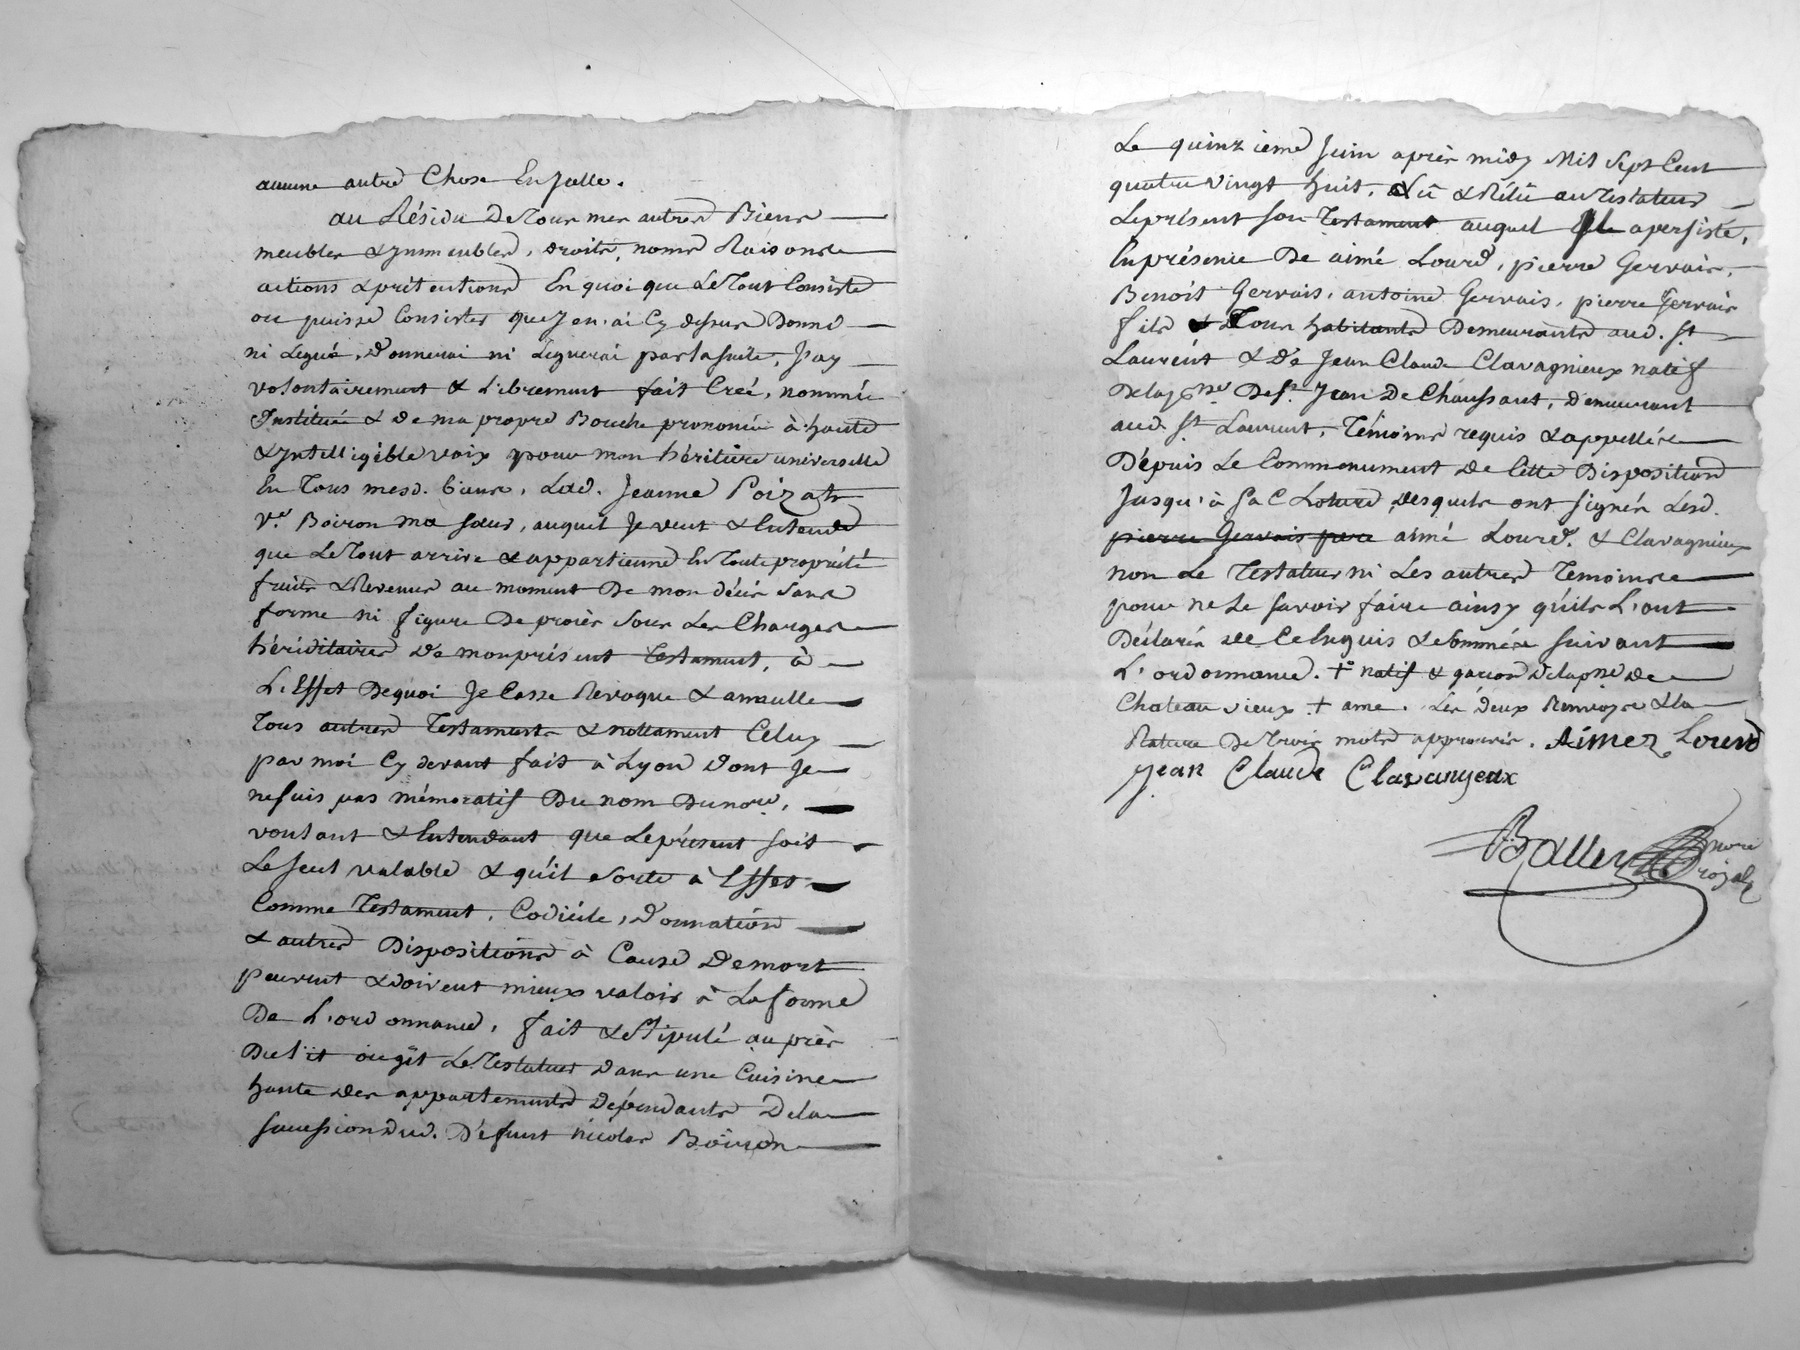 aucune autre Chose En Jcelle.
au Résidu De Tous mes autres Biens
meubles & Jmmeubles, droits, noms Raisons
actions & prétentions En quoi que Le Tout Consiste
ou puisse Consister que J'en ai Cy dessus Donné
ni Legué, d'onnerai ni Leguerai par la suite, J'ay
volontairement & Librement fait Créé, nommée
Jnstitué & De ma propre Bouche prononcée à haute
& Jntelligible voix pour mon héritière universelle
En Tous mesd. biens, Lad. Jeanne Poizat
Ve. Boiron ma sœur, auquel Je veut & Entends
que Le Tout arrive & appartienne En Toute propriété
fruits & Revenus au moment De mon décès sans
forme ni figure De procès sous Les Charges
héréditaires De mon présent Testament, à
L'Effet De quoi Je Casse Revoque & annulle
Tous autres Testaments & nottament Celuy
par moi Cy devant fait à Lyon dont Je
ne suis pas mémoratif Du nom Du nore,
voulant & Entendant que Le présent soit
Le seul valable & qu'il sorte à Effet
Comme Testament, Codicile, D'onnation
& autres Dispositions à Cause De mort
peuvent & doivent mieux valoir à La forme
De L'ordonnance, fait & Stipulé auprès
Du lit ou gît Le Testateur dans une Cuisine
haute des appartements Dépendants De la
succession dud. Défunt nicolas Boiron
Le quinzieme Juin après midy Mil Sept Cent
quatre vingt huit, Lû & Rélû au Testateur
Le présent son Testament auquel Il a persisté,
En présence De aimé Lourd, pierre Gervais,
Benoît Gervais, antoine Gervais, pierre Gervais
fils & Tous habitants Demeurants aud. St.
Laurent & De Jean Claude Clavagnieux natif
De la psse. De St. Jean De Chaussant, demeurant
aud. St. Laurent, Témoins requis & appellés
Depuis Le Commencement De Cette Disposition
Jusqu'à Sa Cloture, desquels ont signés Lesd.
pierre Gervais pere aimé Lourd. & Clavagnieux
non Le Testateur ni Les autres Temoins
pour ne Le savoir faire ainsy qu'ils L'ont
Déclarés de Ce Enquis & Sommés suivant
L'ordonnance. + natif & garcon De la psse de
Chateau vieux + ame. Les deux Renvoys & la
Rature De Trois mots approuvés. Aimez Lourd
Jean Claude Clavanyeux
Ballen nore
royal